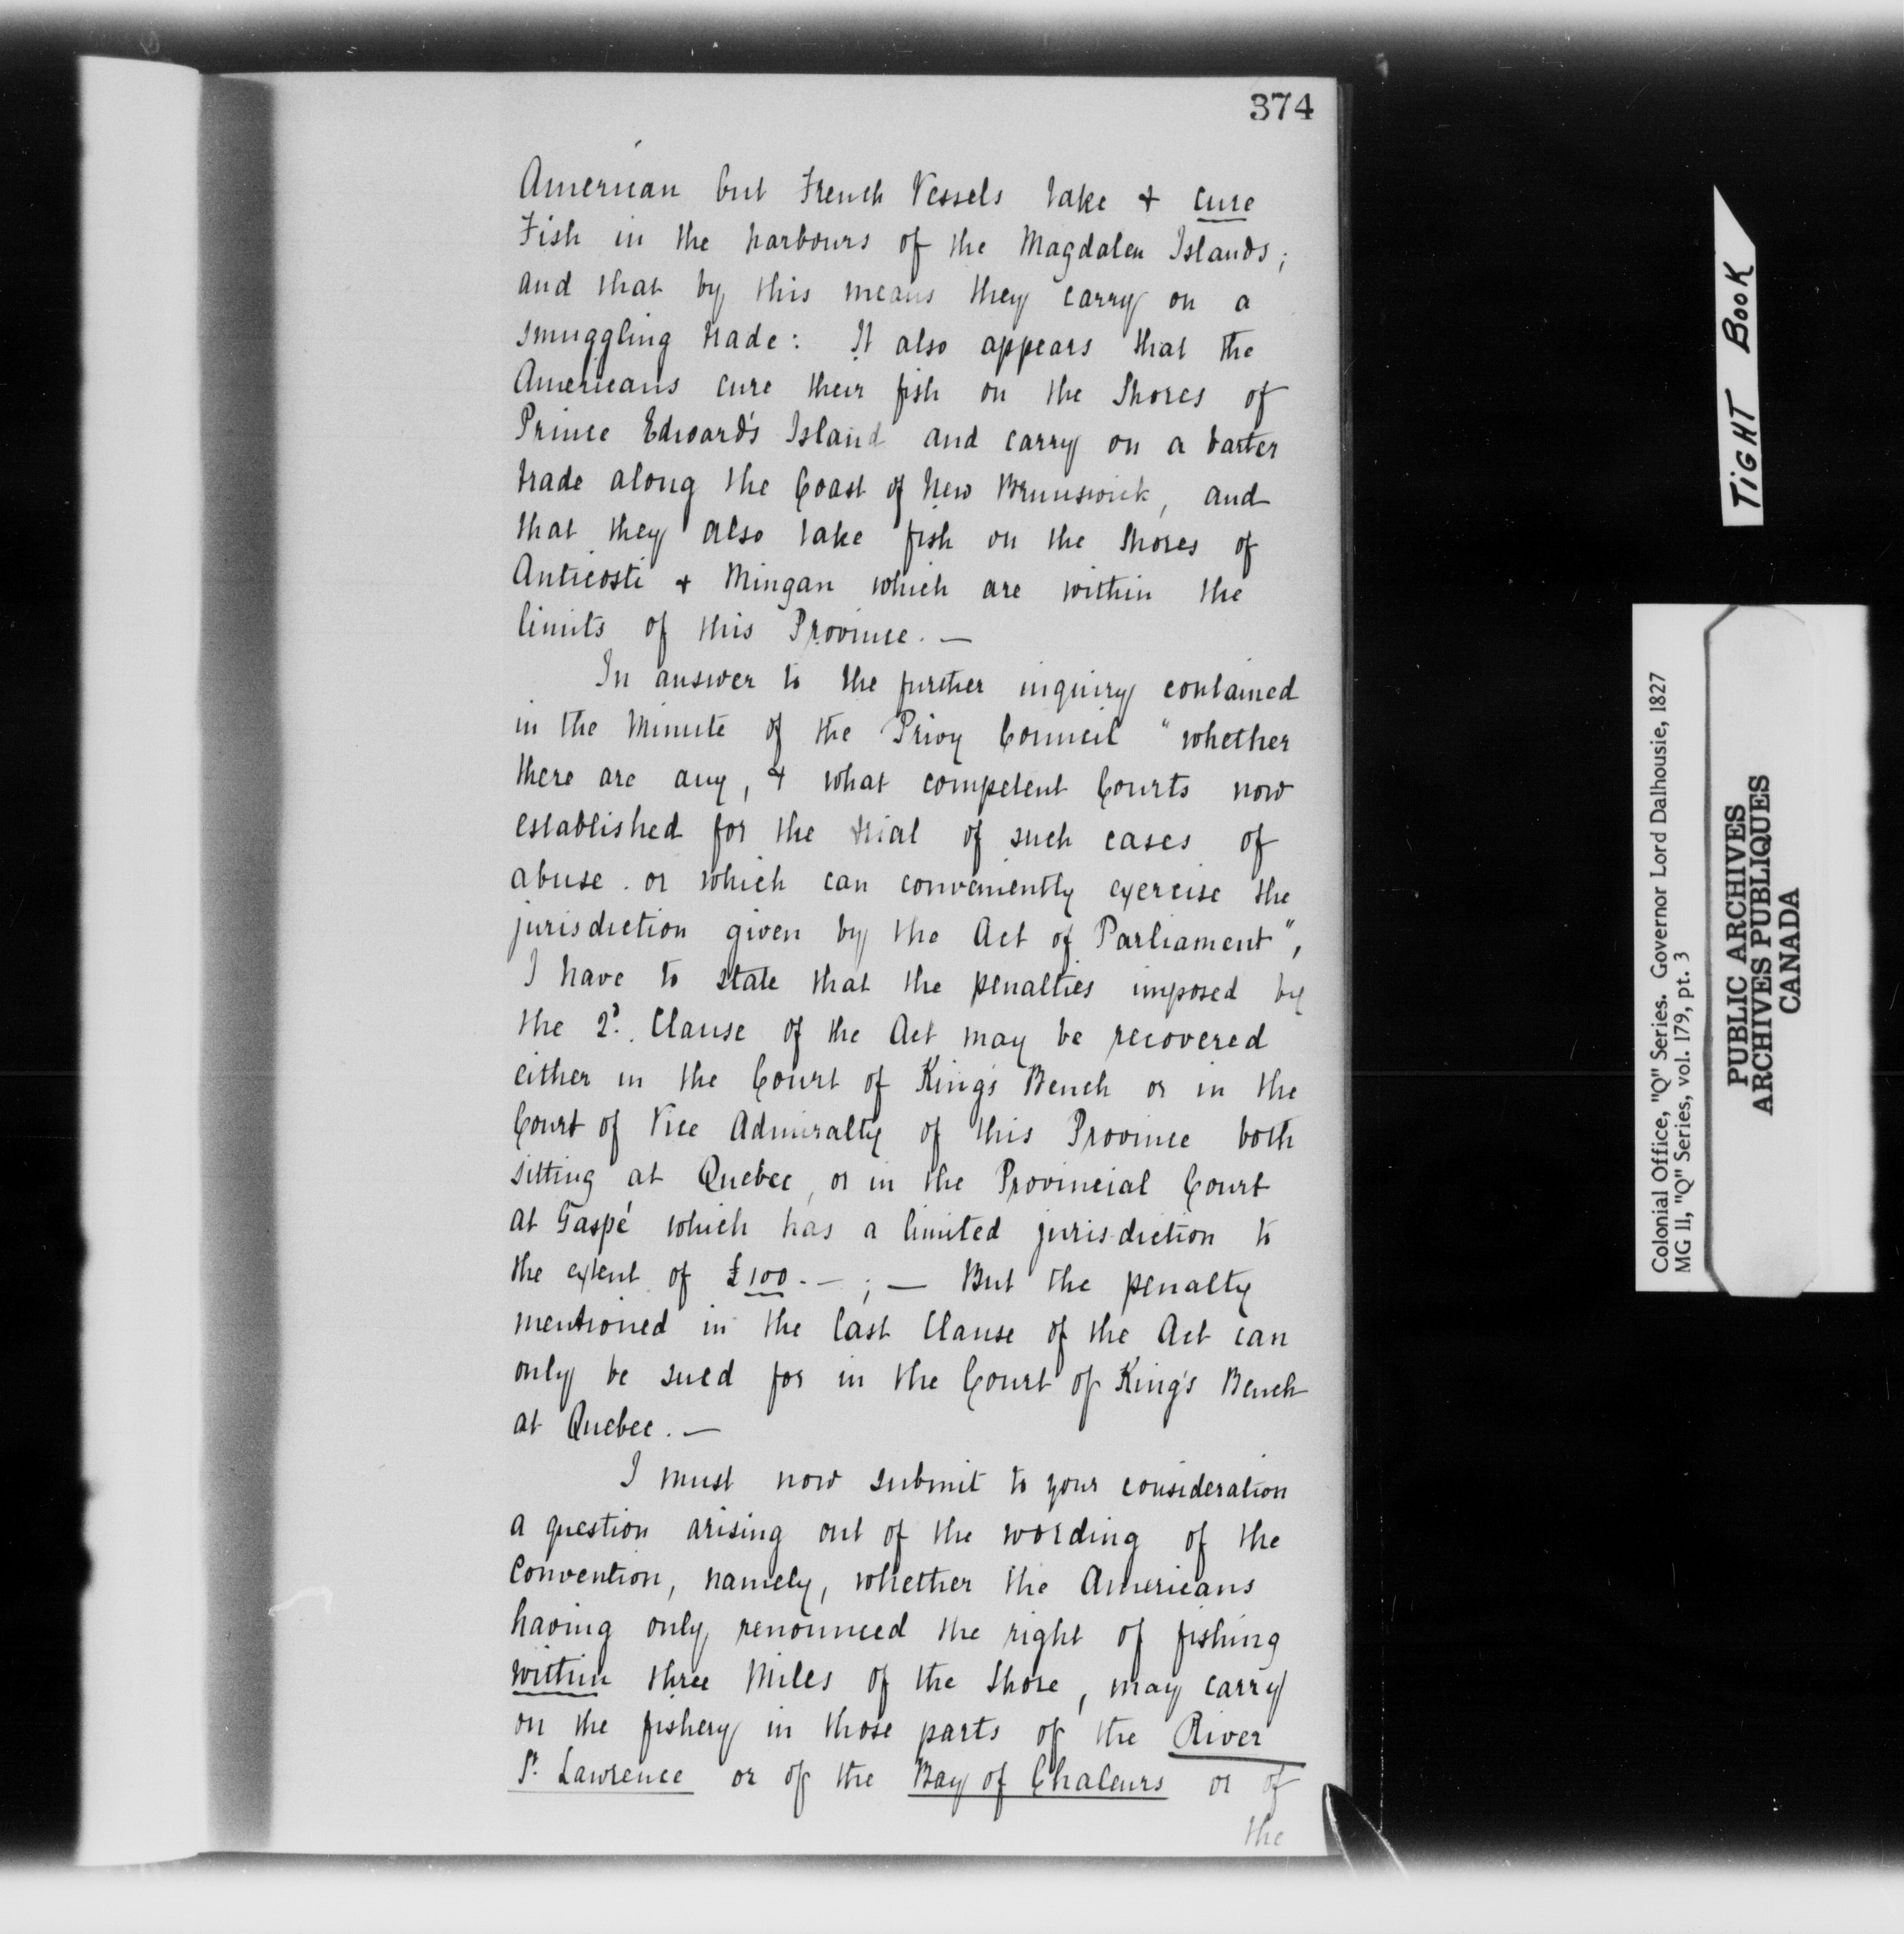 374
American but French Vessels take & cure
Fish in the harbours of the Magdalen Islands;
and that by this means they carry on a
smuggling trade: It also appears that the
Americans cure their fish on the Shores of
Prince Edward's Island and carry on a barter
trade along the Coast of New Brunswick, and
that they also take fish on the Shores of
Anticosti & Mingan which are within the
limits of this Province. —
In answer to the further inquiry contained
in the Minute of the Privy Council "whether
there are any, & what competent Courts now
established for the trial of such cases of
abuse . or which can conveniently exercise the
jurisdiction given by the Act of Parliament",
I have to state that the penalties imposed by
the 2d. Clause of the Act may be recovered
either in the Court of King's Bench or in the
Court of Vice Admiralty of this Province both
sitting at Quebec, or in the Provincial Court
at Gaspé which has a limited jurisdiction to
the extent of £100. — ; — But the penalty
mentioned in the last Clause of the Act can
only be sued for in the Court of King's Bench
at Quebec. —
I must now submit to your consideration
a question arising out of the wording of the
Convention, namely, whether the Americans
having only renounced the right of fishing
within three Miles of the Shore, may carry
on the fishery in those parts of the River
St. Lawrence or of the Bay of Chaleurs or of
the
TIGHT BOOK
Colonial Office, "Q" Series. Governor Lord Dalhousie, 1827
MG 11, "Q" Series, vol. 179, pt. 3
PUBLIC ARCHIVES
ARCHIVES PUBLIQUES
CANADA